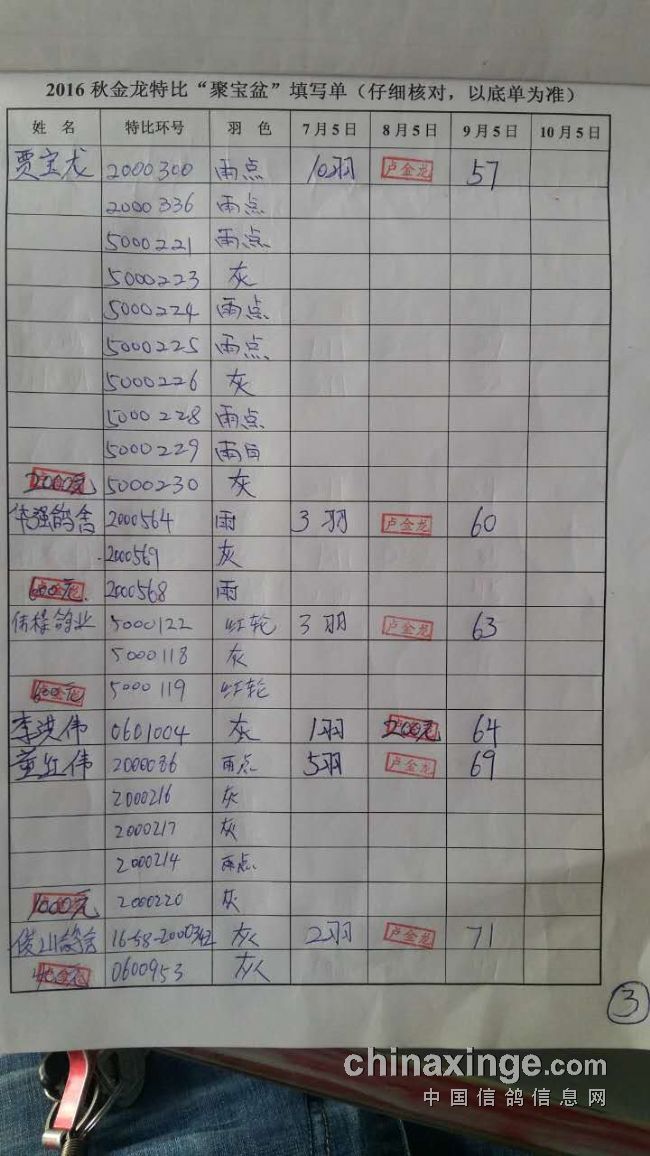 2016 秋金龙特比“聚宝盆”填写单（仔细核对，以底单为准）
姓 名 特比环号 羽 色 7月5日 8月5日 9月5日 10月5日
贾宝龙 2000300 雨点 10羽 卢金龙 57
2000336 雨点
5000221 雨点
5000223 灰
5000224 雨点
5000225 雨点
5000226 灰
5000228 雨点
5000229 雨白
2000元 5000230 灰
华强鸽舍 2000564 雨 3羽 卢金龙 60
2000569 灰
600元 2000568 雨
鸽业 5000122 红轮 3羽 卢金龙 63
5000118 灰
600元 5000119 红轮
李洪伟 0601004 灰 1羽 200元 64
董红伟 2000086 雨点 5羽 卢金龙 69
2000216 灰
2000217 灰
2000214 雨点
1000元 2000220 灰
俊川鸽舍 16-58-2000342 灰 2羽 卢金龙 71
0600953 灰
3
chinaxinge.com
中国信鸽信息网